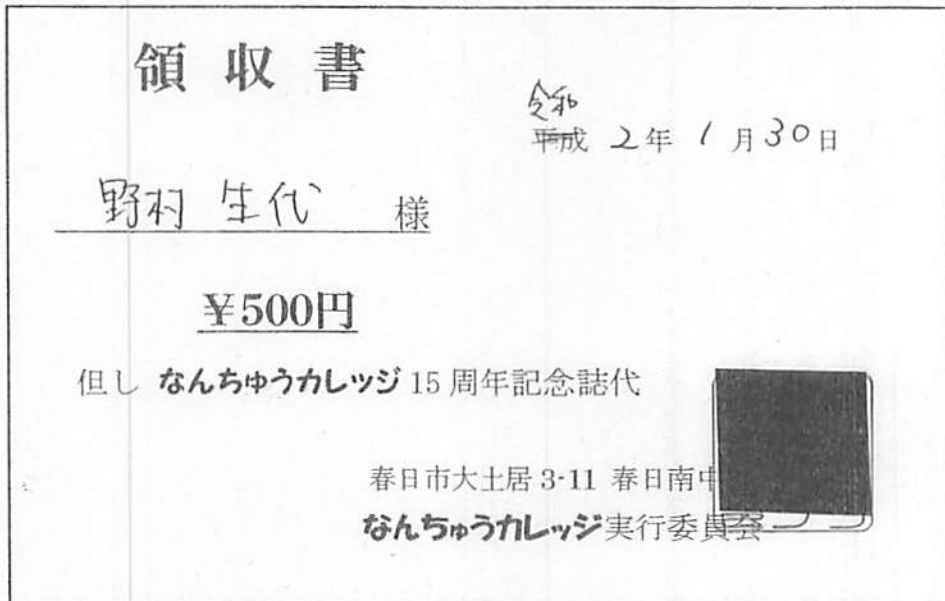 領収書
令和
平成 2年 1月30日
野村 生代 様
¥500円
但し なんちゅうカレッジ 15周年記念誌代
春日市大土居 3-11 春日南中
なんちゅうカレッジ実行委員会